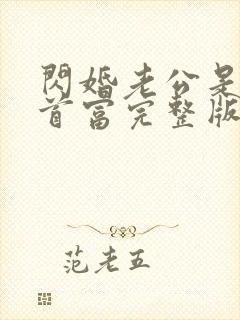 閃婚老公是
首富完整版
范老五